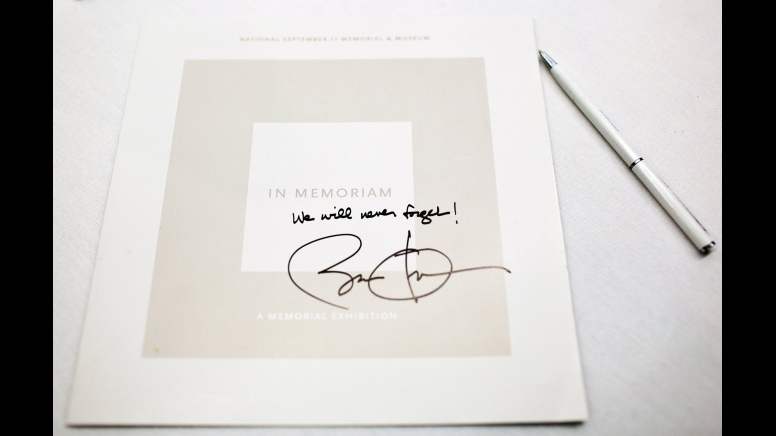 NATIONAL SEPTEMBER 11 MEMORIAL & MUSEUM
IN MEMORIAM
We will never forget!
A MEMORIAL EXHIBITION